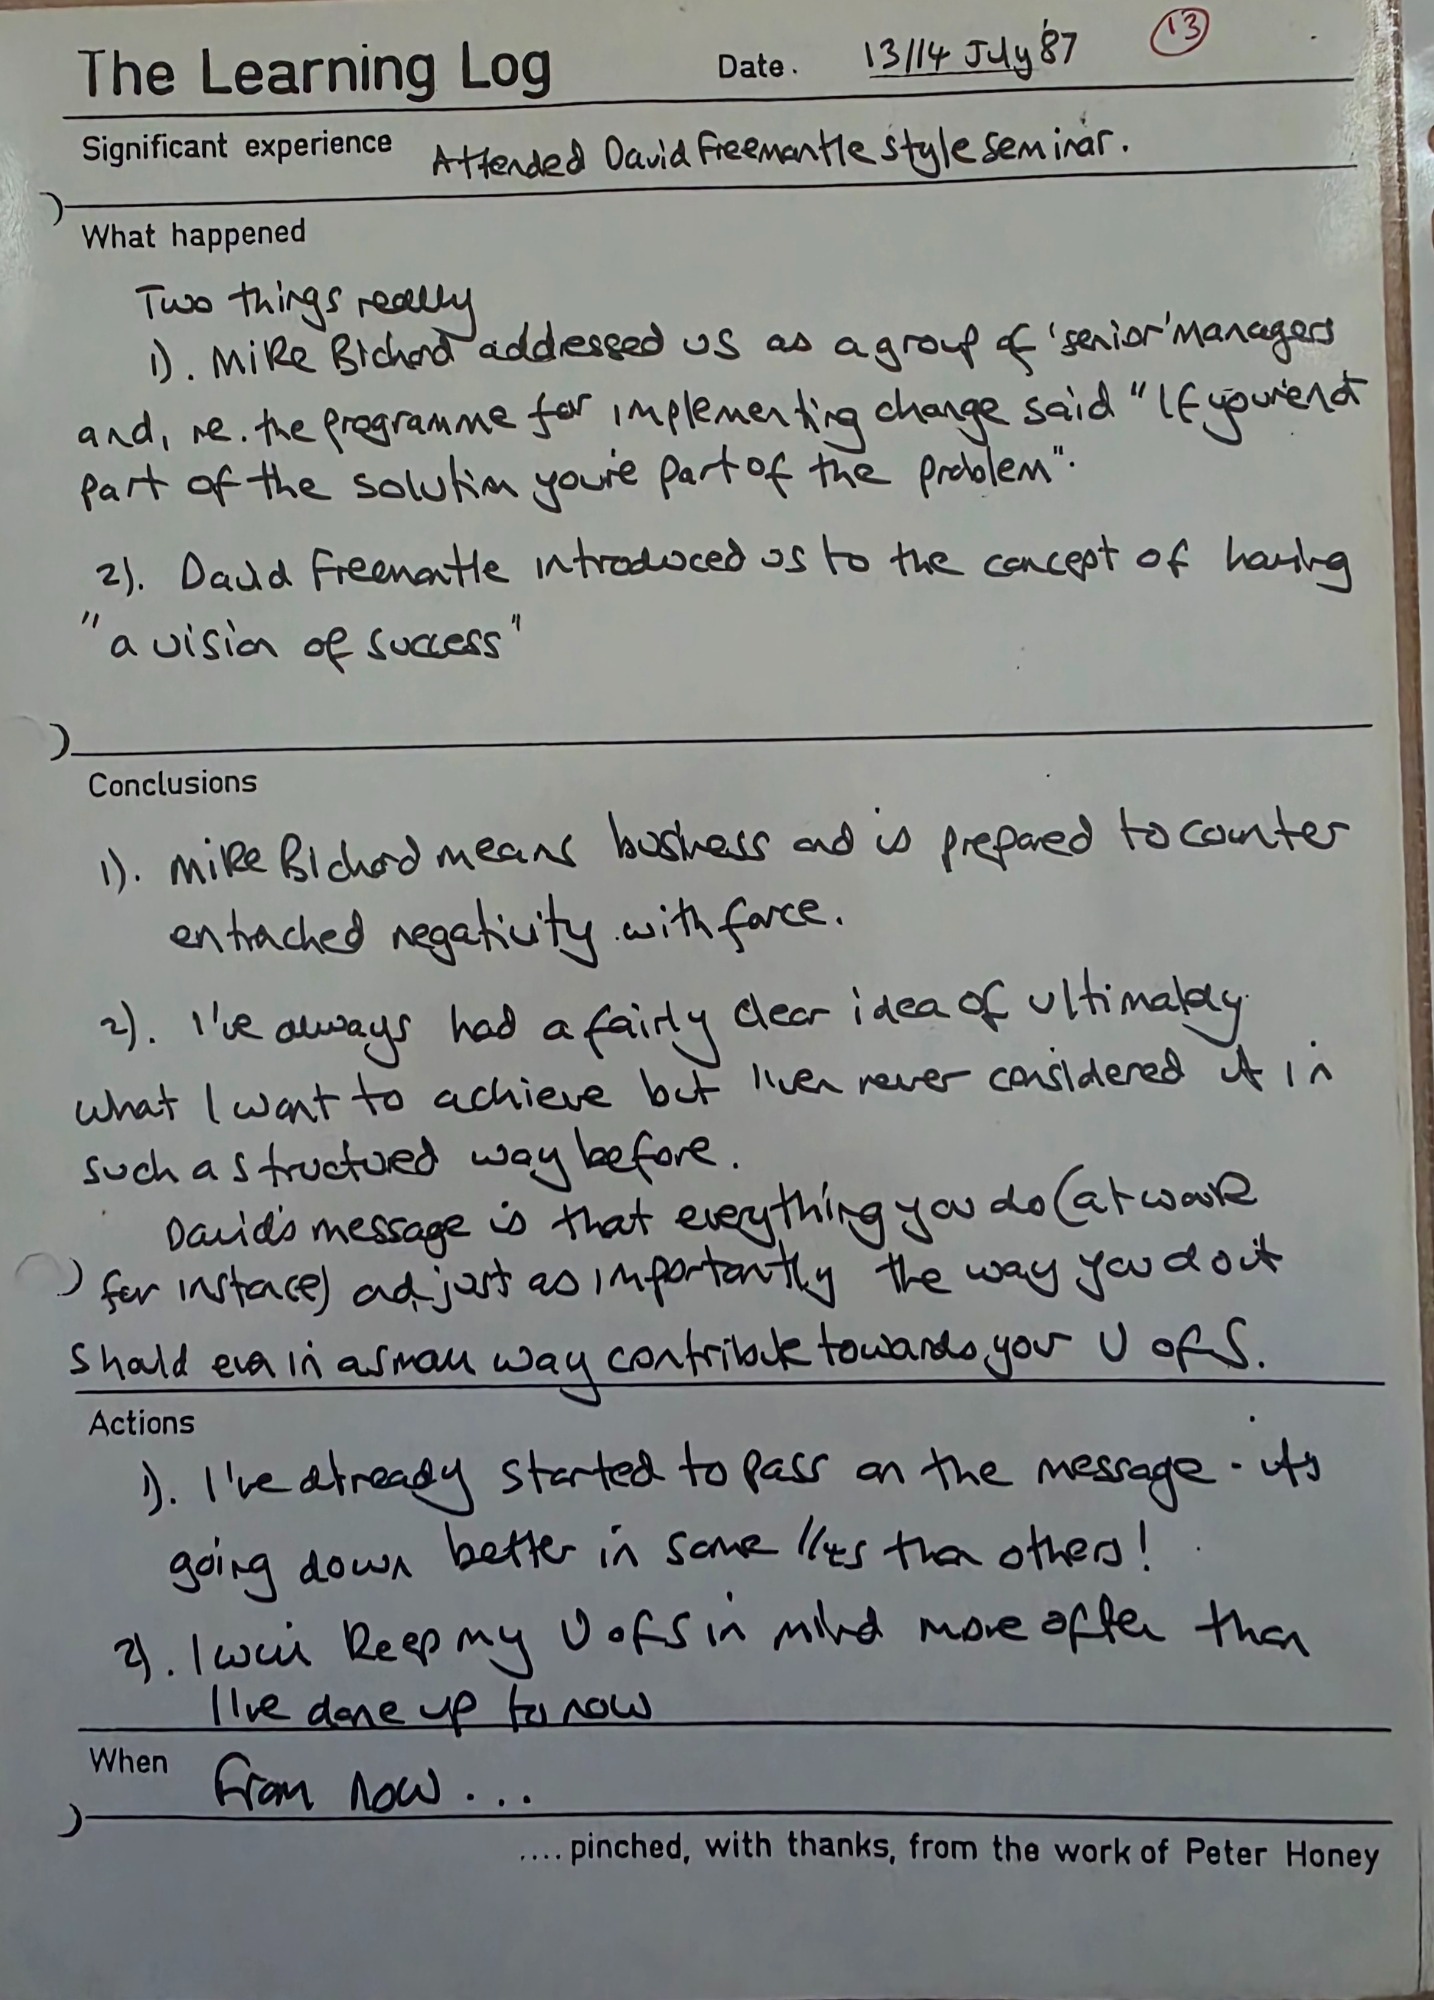 The Learning Log Date. 13/14 July '87 13
Significant experience Attended David Freemantle style seminar.
What happened
Two things really
1). Mike Bichard addressed us as a group of 'senior' managers
and, re. the programme for implementing change said "If you're not
part of the solution you're part of the problem".
2). David Freemantle introduced us to the concept of having
"a vision of success"
Conclusions
1). Mike Bichard means business and is prepared to counter
entrached negativity with force.
2). I've always had a fairly clear idea of ultimately
what I want to achieve but never considered it in
such a structured way before.
David's message is that everything you do (at work
for instance) and, just as importantly the way you do it
should even in a small way contribute towards your V of S.
Actions
1). I've already started to pass on the message - it's
going down better in some than others!
2). I will keep my V of S in mind more often than
I've done up to now
When from now ...
.... pinched, with thanks, from the work of Peter Honey